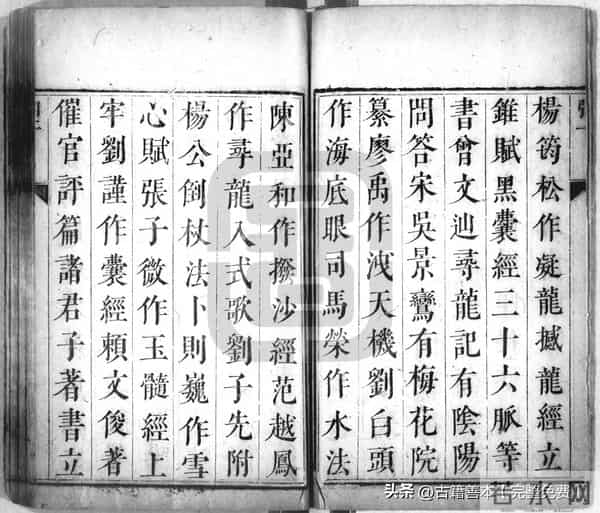 楊筠松作凝龍撼龍經立
錐賦黑囊經三十六脈等
書曾文辿尋龍記有陰陽
問答宋吳景鸞有梅花院
纂廖禹作洩天機劉白頭
作海底眼司馬榮作水法
陳亞和作撥沙經范越鳳
作尋龍入式歌劉子先附
楊公倒杖法卜則巍作雪
心賦張子微作玉髓經上
牢劉謹作囊經賴文俊著
催官評篇諸君子著書立
头条 @古籍善本